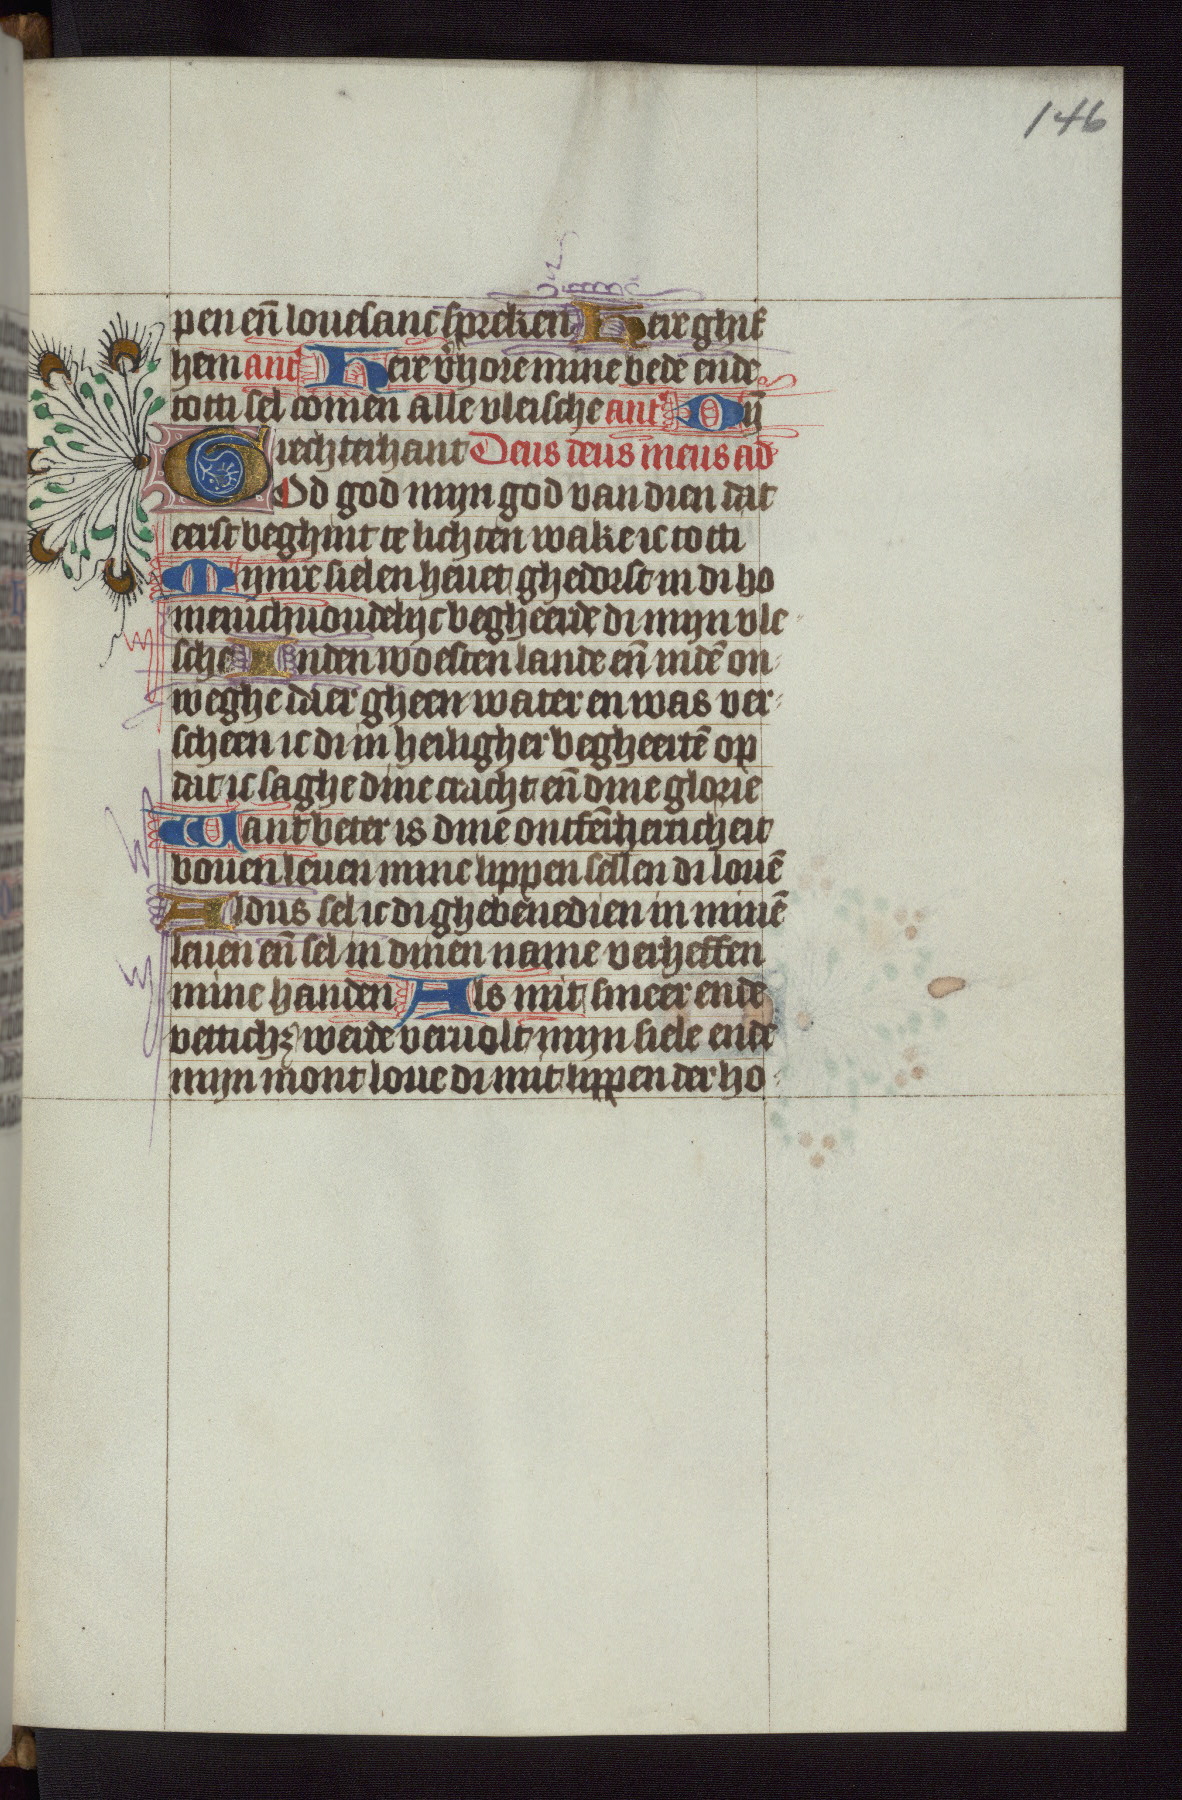 146
pen en̄ louesanc spreken Heer ghif
hem ant Here v̄hore mine bede ende
totti sel comen alle vleische ant Dij
rechterhant Deus deus meus ad
God god mijn god van dien dat
eerst beghint te lichten wake ic totti
Mijnre sielen heuet ghedorst in di ho
menichuoudelijc begheerde di mijn vle
sche Inden woesten lande en̄ indē on
weghe daer gheen water en was ver
scheen ic di in heiligher begheertē op
dat ic saghe dine cracht en̄ dine glorie
Want beter is dine ontfērherticheit
bouen leuen mine lippen sellen di louē
Aldus sel ic di ghebenedien in minē
leuen en̄ sel in dinen name verheffen
mine handen Als mit smeer ende
vetticħ weide veruolt mijn siele ende
mijn mont loue di mit lippen der ho